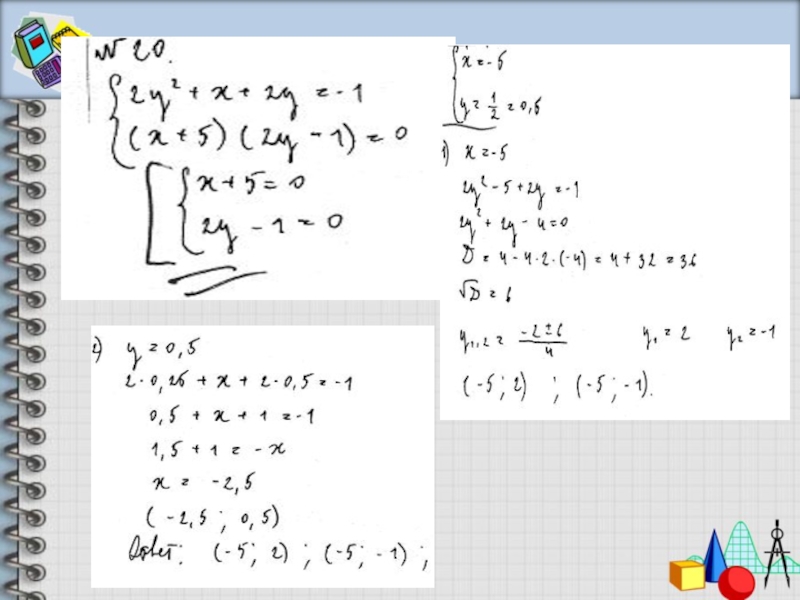 № 20.
{ 2y² + x + 2y = -1
(x + 5)(2y - 1) = 0
[ { x + 5 = 0
2y - 1 = 0
{ x = -5
y = 1/2 = 0,5
1) x = -5
2y² - 5 + 2y = -1
2y² + 2y - 4 = 0
D = 4 - 4·2·(-4) = 4 + 32 = 36
√D = 6
y₁,₂ = (-2 ± 6)/4 y₁ = 2 y₂ = -1
(-5; 2) ; (-5; -1).
2) y = 0,5
2·0,25 + x + 2·0,5 = -1
0,5 + x + 1 = -1
1,5 + 1 = -x
x = -2,5
(-2,5; 0,5)
Ответ: (-5; 2) ; (-5; -1) ;